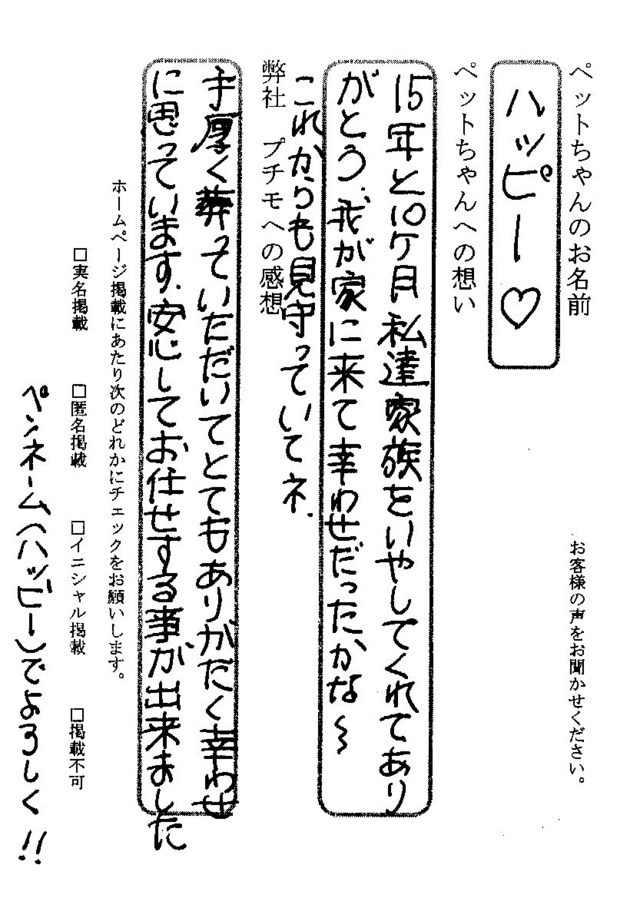 お客様の声をお聞かせください。
ペットちゃんのお名前
ハッピー♡
ペットちゃんへの想い
15年と10ケ月私達家族をいやしてくれてあり
がとう、我が家に来て幸わせだったかな〜
これからも見守っていてネ.
弊社 プチモへの感想
手厚く葬っていただいてとてもありがたく幸わせ
に思っています.安心してお任せする事が出来ました
ホームページ掲載にあたり次のどれかにチェックをお願いします。
□実名掲載 □匿名掲載 □イニシャル掲載 □掲載不可
ペンネーム(ハッピー)でよろしく!!